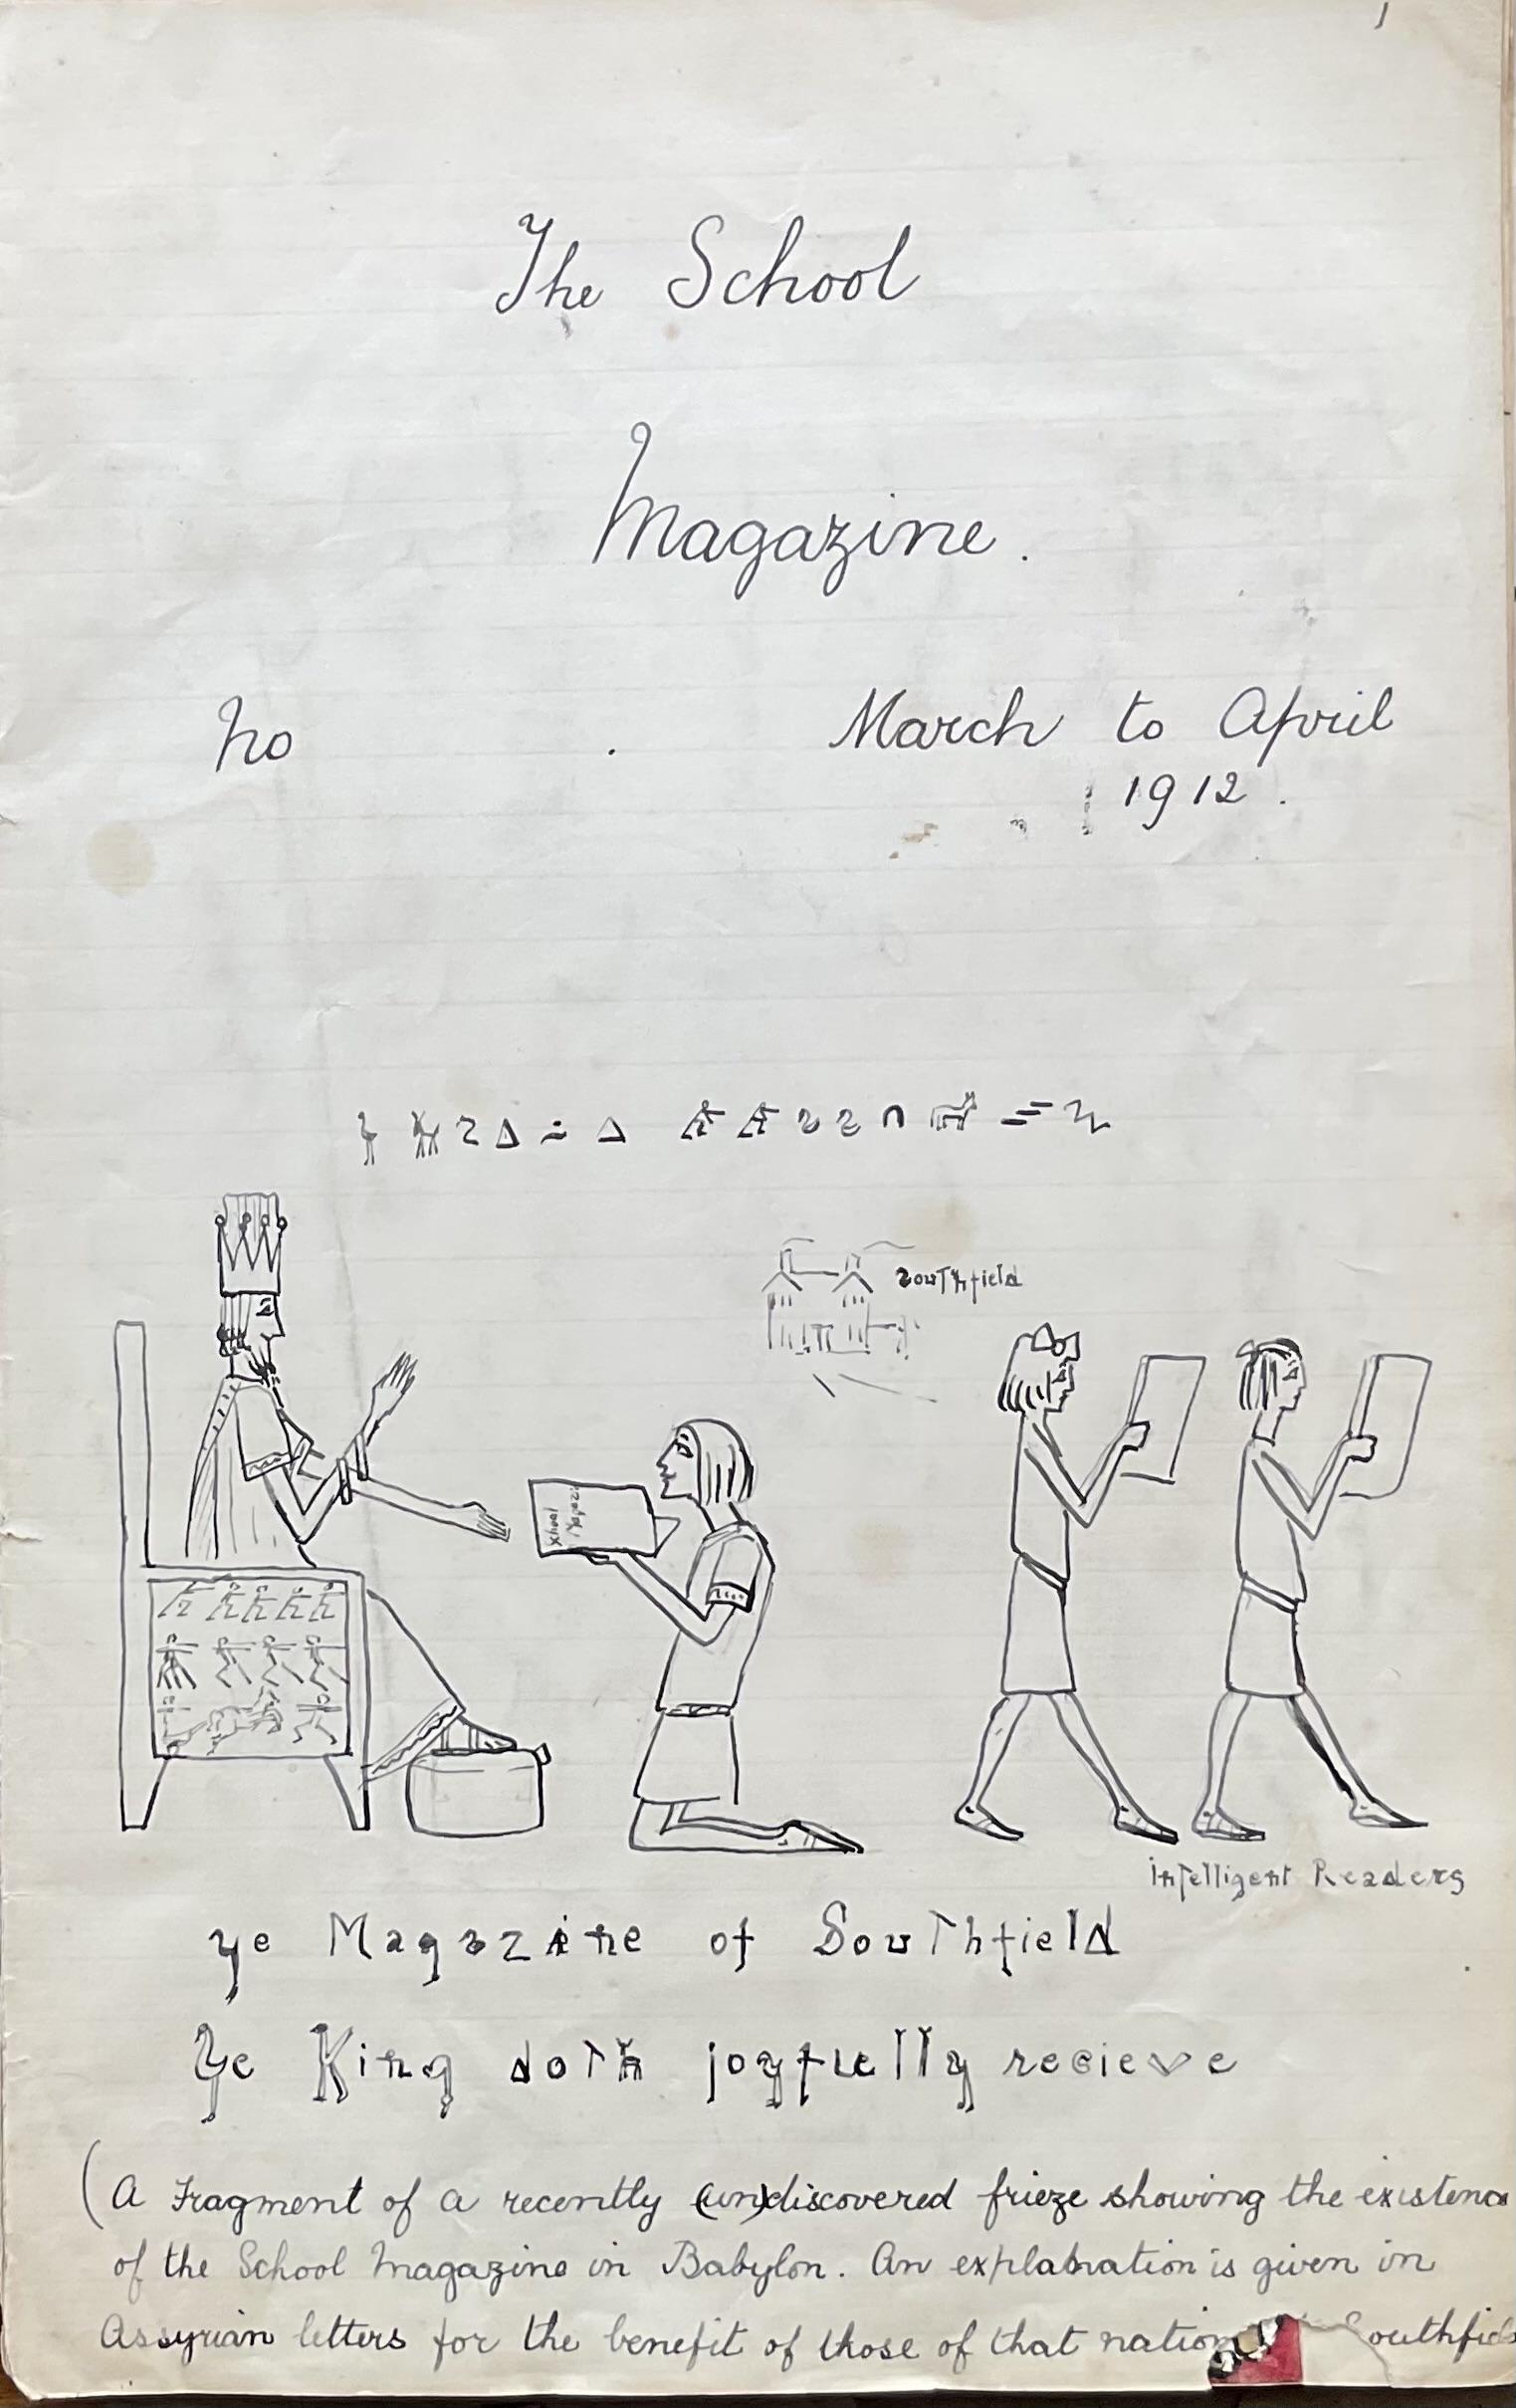 1
The School
Magazine.
No .
March to April
1912.
Southfield
School
Magazi
Intelligent Readers
ye Magazine of Southfield
Ye King doth joyfully recieve
(A Fragment of a recently (un)discovered frieze showing the existenc
of the School Magazine in Babylon. An explanation is given in
Assyrian letters for the benefit of those of that nation outhfield